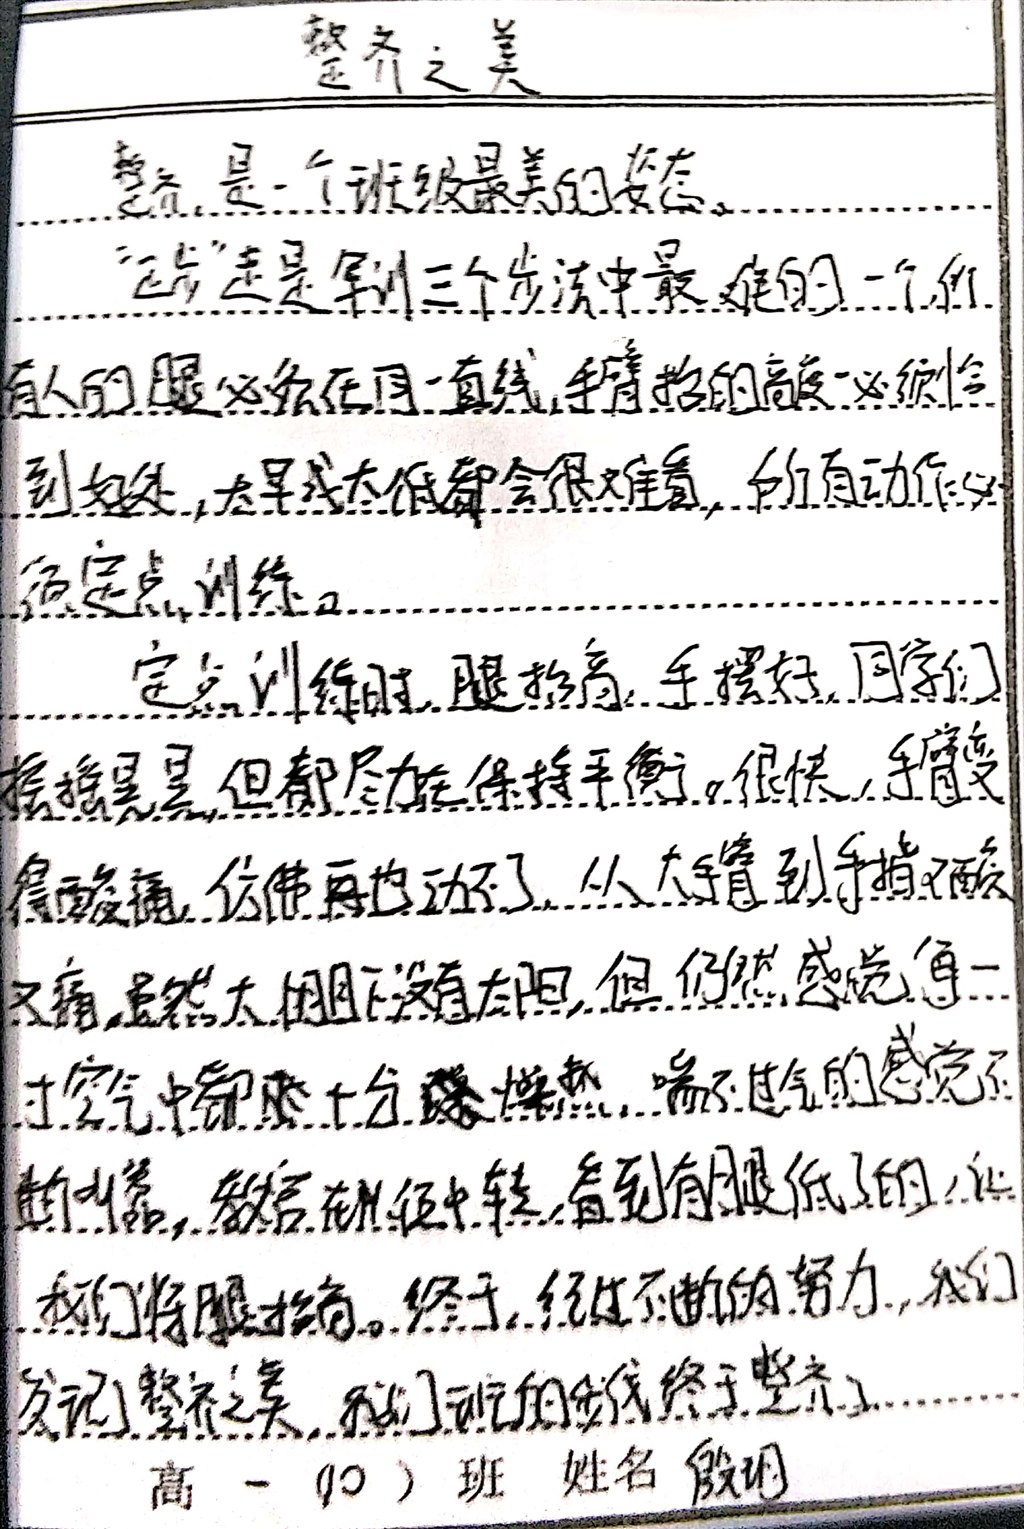 整齐之美
整齐,是一个班级最美的姿态。
“正步”走是军训三个步法中最难的一个,所
有人的腿必须在同一直线,手臂抬的高度必须恰
到好处,太早或太低都会很难看,所有动作必
须定点训练。
定点训练时,腿抬高,手摆好,同学们
摇摇晃晃,但都尽力在保持平衡。很快,手臂变
得酸痛,仿佛再也动不了,从大手臂到手指又酸
又痛,虽然大阴天没有太阳,但仍然感觉每一
寸空气中都十分燥热,喘不过气的感觉不
教官在队伍中转,看到有腿低了的,让
我们将腿抬高。终于,经过不断的努力,我们
发现了整齐之美,我们班的步伐终于整齐了
高一(10)班 姓名 殷玥